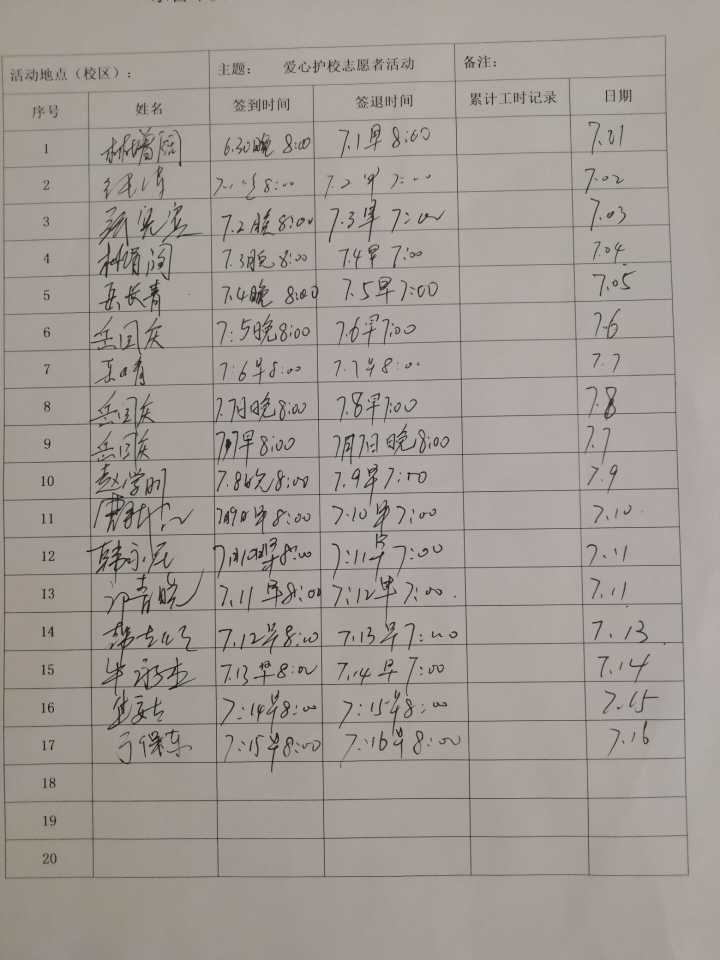 活动地点（校区）： 主题： 爱心护校志愿者活动 备注：
序号 姓名 签到时间 签退时间 累计工时记录 日期
1 林增阔 6.30晚 8:00 7.1早 8:00 7.01
2 7.2早 7:00 7.02
3 7.2晚 8:00 7.3早 7:00 7.03
4 林增阔 7.3晚 8:00 7.4早 7:00 7.04
5 岳长青 7.4晚 8:00 7.5早7:00 7.05
6 岳国庆 7:5晚8:00 7.6早7:00 7.6
7 7:6早8:00 7.7早8:00 7.7
8 岳国庆 7.7日晚8:00 7.8早7:00 7.8
9 岳国庆 早8:00 7月7日晚8:00 7.7
10 赵学明 7.8晚8:00 7.9早7:00 7.9
11 早8:00 7.10早7:00 7.10
12 8:00 7:11早7:00 7.11
13 许青晓 7.11早8:00 7:12早7:00 7.11
14 7.12早8:00 7.13早7:00 7.13
15 毕永杰 7.13早8:00 7.14早7:00 7.14
16 7:14早8:00 7:15早8:00 7.15
17 于保东 7:15早8:00 7:16早8:00 7.16
18
19
20